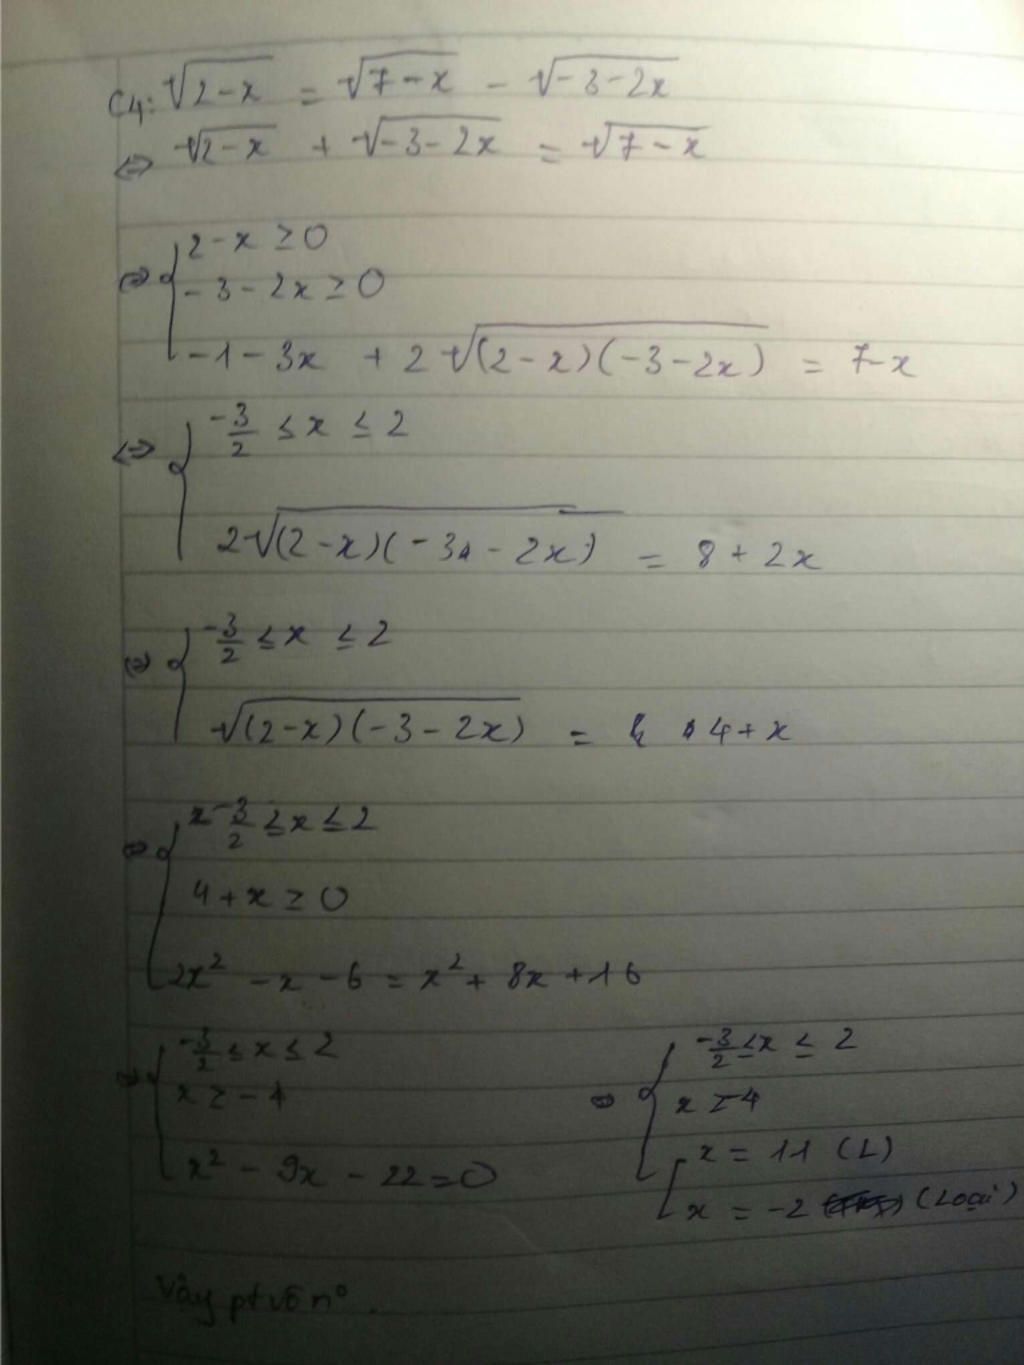 C4: √(2-x) = √(7-x) - √(-3-2x)
⇔ √(2-x) + √(-3-2x) = √(7-x)
⇔ { 2-x ≥ 0
-3-2x ≥ 0
-1-3x + 2√((2-x)(-3-2x)) = 7-x
⇔ { -3/2 ≤ x ≤ 2
2√((2-x)(-3-2x)) = 8+2x
⇔ { -3/2 ≤ x ≤ 2
√((2-x)(-3-2x)) = 4+x
⇔ { -3/2 ≤ x ≤ 2
4+x ≥ 0
2x² - x - 6 = x² + 8x + 16
⇔ { -3/2 ≤ x ≤ 2
x ≥ -4
x² - 9x - 22 = 0
⇔ { -3/2 ≤ x ≤ 2
x ≥ -4
[ x = 11 (L)
x = -2 (Loại)
Vậy pt vô nº.